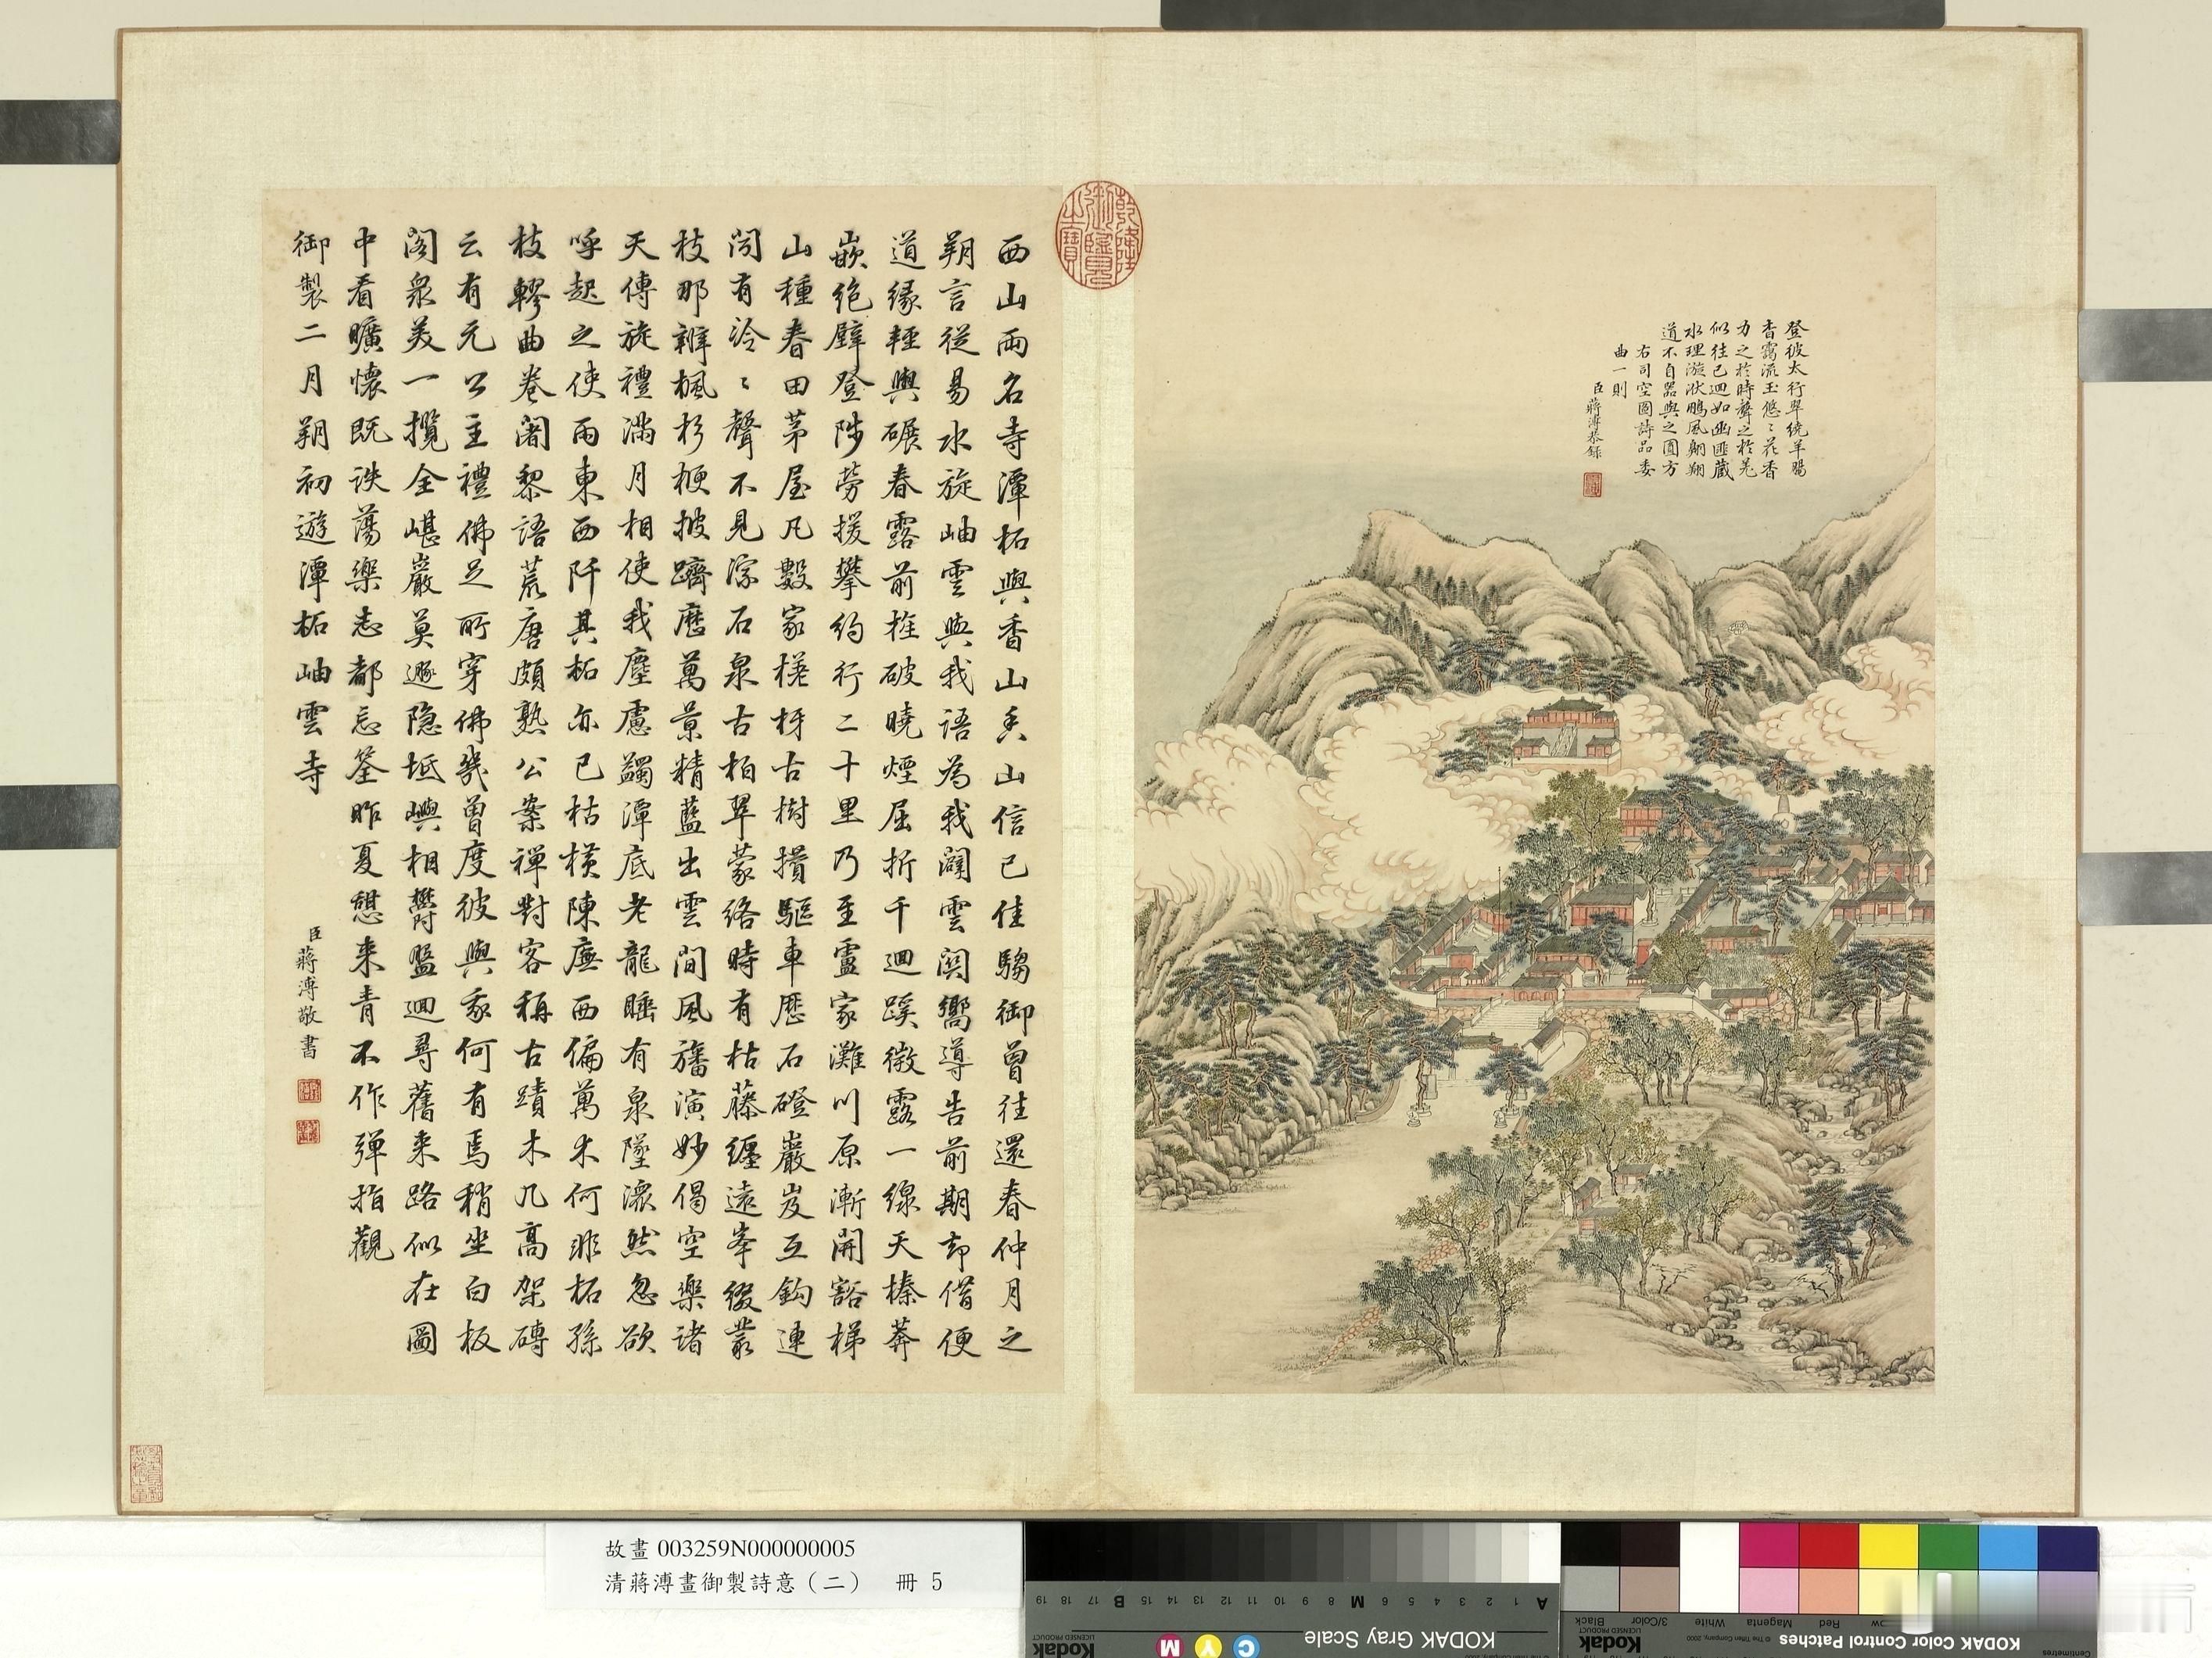 登彼太行翠繞羊腸
杳靄流玉悠〻花香
力之於時聲之於羌
似往已迴如幽匪藏
水理漩洑鵬風翱翔
道不自器與之圓方
右司空圖詩品委
曲一則
臣蔣溥恭錄
乾隆御覽之寶
西山兩名寺潭柘與香山香山信已佳騶御曾往還春仲月之
朔言從易水旋岫雲與我語為我闢雲關嚮導告前期却借便
道緣輕輿碾春露前旌破曉煙屈折千迴蹊微露一線天榛莽
嵌絶壁登陟勞援攀約行二十里乃至盧家灘川原漸開豁梯
山種春田茅屋凡數家槎枒古樹攢驅車歷石磴巖岌互鈎連
間有泠〻聲不見淙石泉古柏翠蒙絡時有枯藤纏遠峯綴叢
枝那辨楓杉楩披躋歷萬景精藍出雲間風旛演妙偈空樂諸
天傳旋禮滿月相使我塵慮蠲潭底老龍睡有泉墜然忽欲
呼起之使雨東西阡其柘亦已枯橫陳廡西偏萬木何非柘孫
枝轇曲卷闍黎語荒唐頗熟公案禪對客稱古蹟木几高架磚
云有元公主禮佛足所穿佛幾曾度彼與何有焉稍坐白板
閣泉美一攬全嵁巖莫遯隱坻嶼相欝盤迴尋舊来路似在圖
中看曠懷既詄蕩樂志都忘筌昨夏憩来青不作彈指觀
御製二月朔初遊潭柘岫雲寺
臣蔣溥敬書
故畫 003259N000000005
清蔣溥畫御製詩意（二） 冊 5
KODAK Gray Scale
Kodak
C Y M
A 1 2 3 4 5 6 M 8 9 10 11 12 13 14 15 B 17 18 19
KODAK Color Control Patches
Kodak
Red Magenta White 3/Color Black
Centimetres